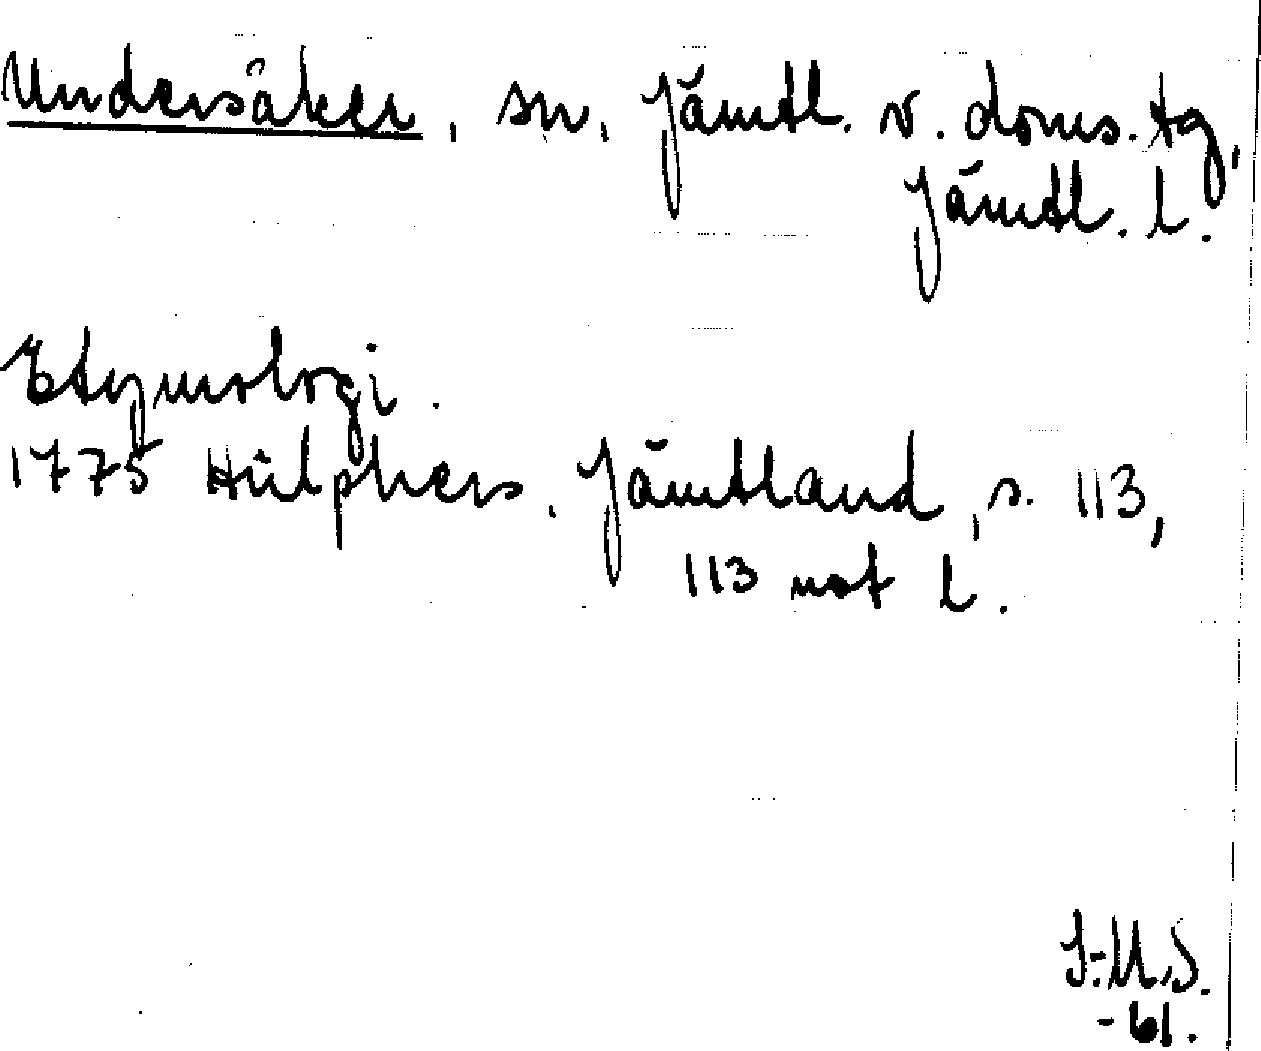 Undersåker, sn, Jämtl. v. doms. tg,
Jämtl. l.
Etymologi.
1775 Hülphers. Jämtland, s. 113,
113 not l.
I-M.S.
-61.